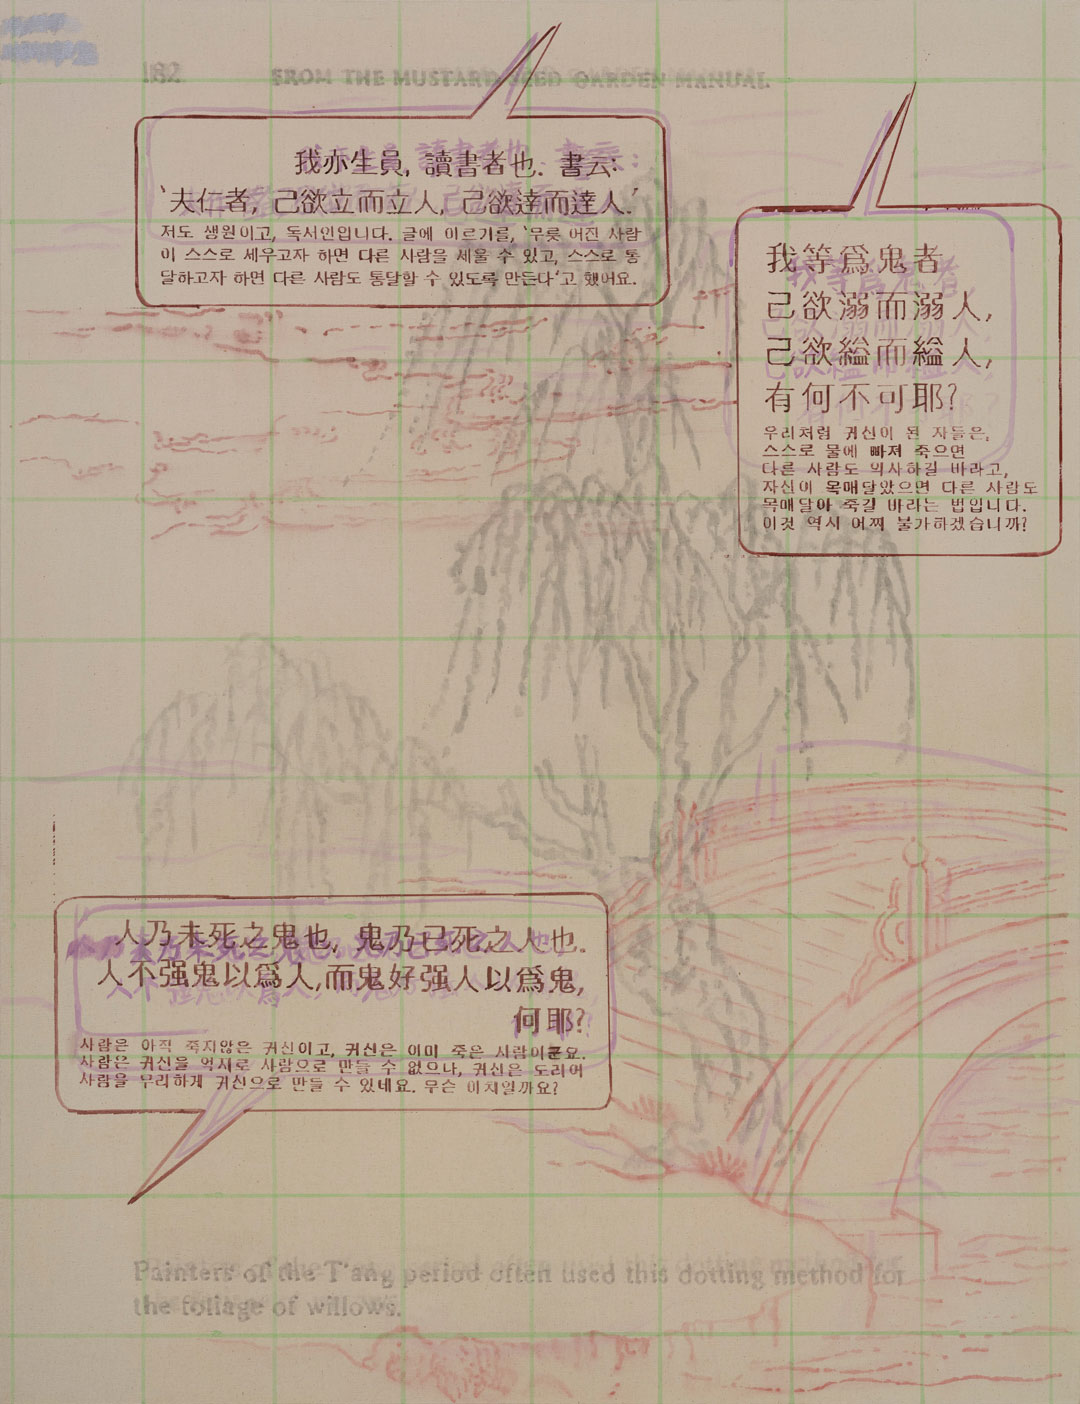 182
FROM THE MUSTARD SEED GARDEN MANUAL
我亦生員, 讀書者也. 書云:
'夫仁者, 己欲立而立人, 己欲達而達人.'
저도 생원이고, 독서인입니다. 글에 이르기를, '무릇 어진 사람
이 스스로 세우고자 하면 다른 사람을 세울 수 있고, 스스로 통
달하고자 하면 다른 사람도 통달할 수 있도록 만든다'고 했어요.
我等爲鬼者
己欲溺而溺人,
己欲縊而縊人,
有何不可耶?
우리처럼 귀신이 된 자들은,
스스로 물에 빠져 죽으면
다른 사람도 익사하길 바라고,
자신이 목매달았으면 다른 사람도
목매달아 죽길 바라는 법입니다.
이것 역시 어찌 불가하겠습니까?
人乃未死之鬼也, 鬼乃已死之人也.
人不强鬼以爲人,而鬼好强人以爲鬼,
何耶?
사람은 아직 죽지않은 귀신이고, 귀신은 이미 죽은 사람이군요.
사람은 귀신을 억지로 사람으로 만들 수 없으나, 귀신은 도리어
사람을 무리하게 귀신으로 만들 수 있네요. 무슨 이치일까요?
Painters of the T'ang period often used this dotting method for
the foliage of willows.